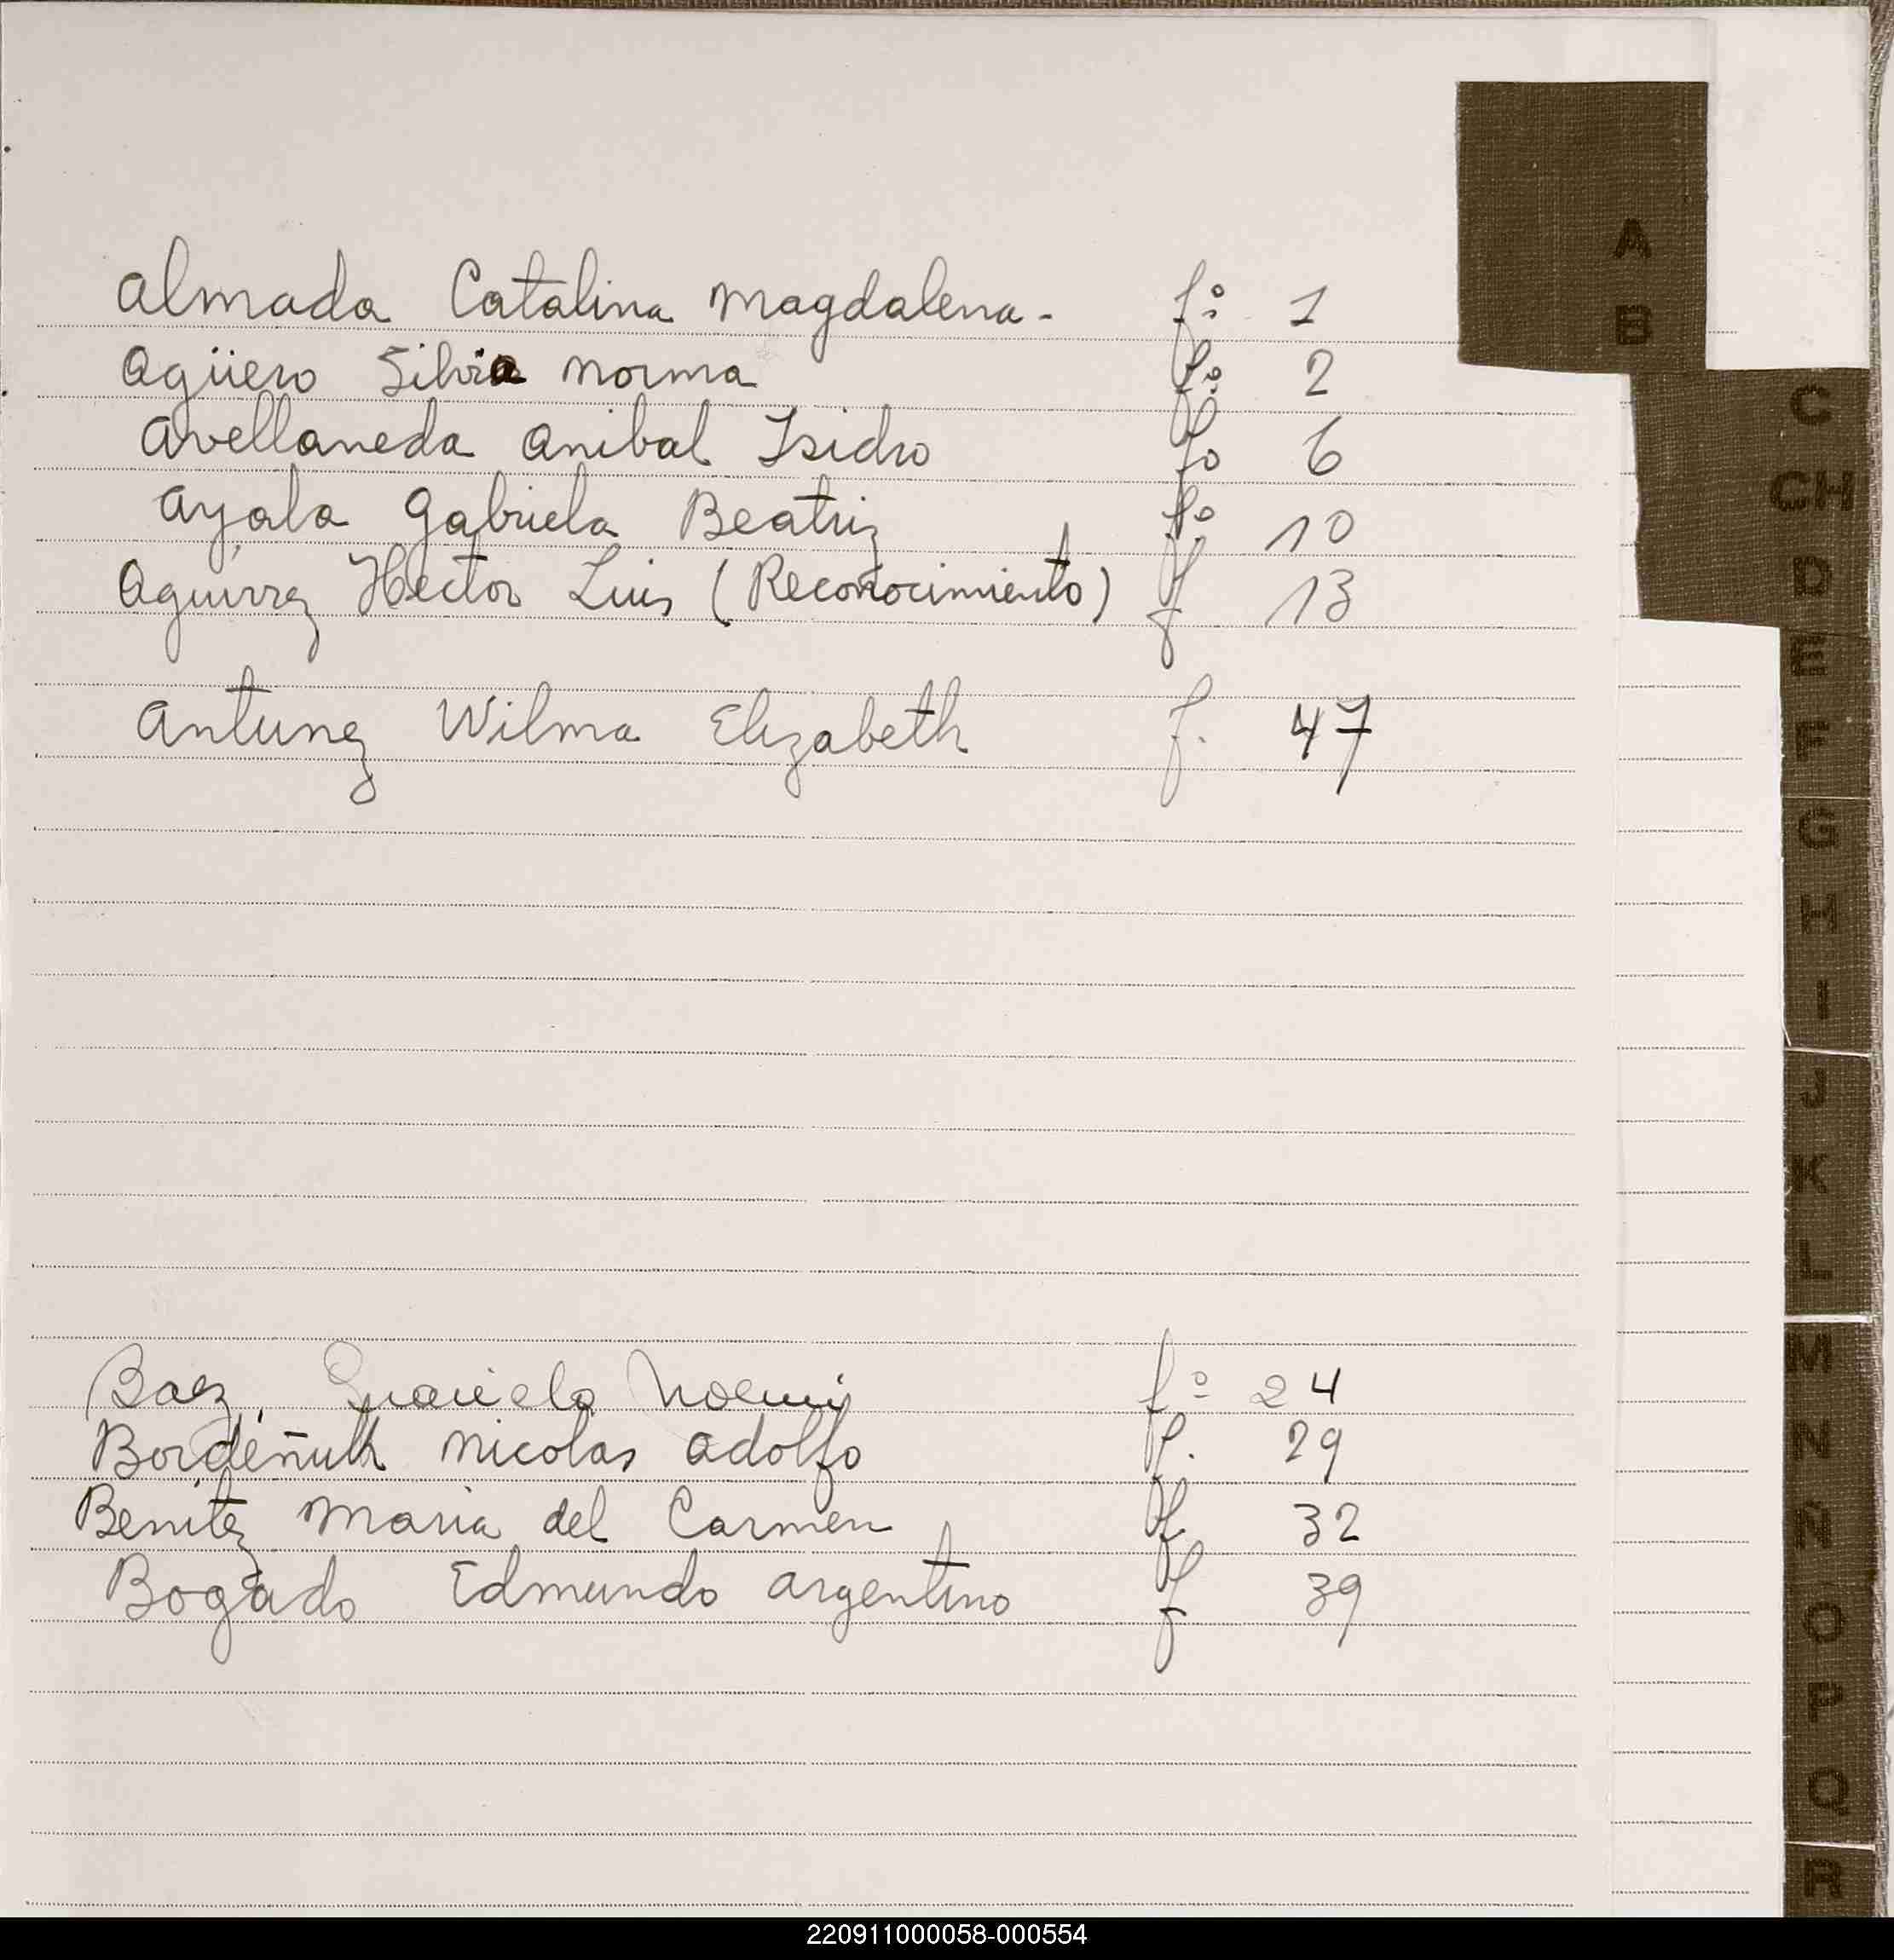 Almada Catalina Magdalena - fº 1
Agüero Silvia Norma fº 2
Avellaneda Anibal Isidro fº 6
Ayala Gabriela Beatriz fº 10
Aguirrez Hector Luis (Reconocimiento) f 13
Antunez Wilma Elizabeth f. 47
Baez, Graciela Noemi fº 24
Bordeñuk Nicolas Adolfo f. 29
Benitez Maria del Carmen f. 32
Bogado Edmundo Argentino f 39
A
B
C
CH
D
E
F
G
H
I
J
K
L
M
N
Ñ
O
P
Q
R
220911000058-000554